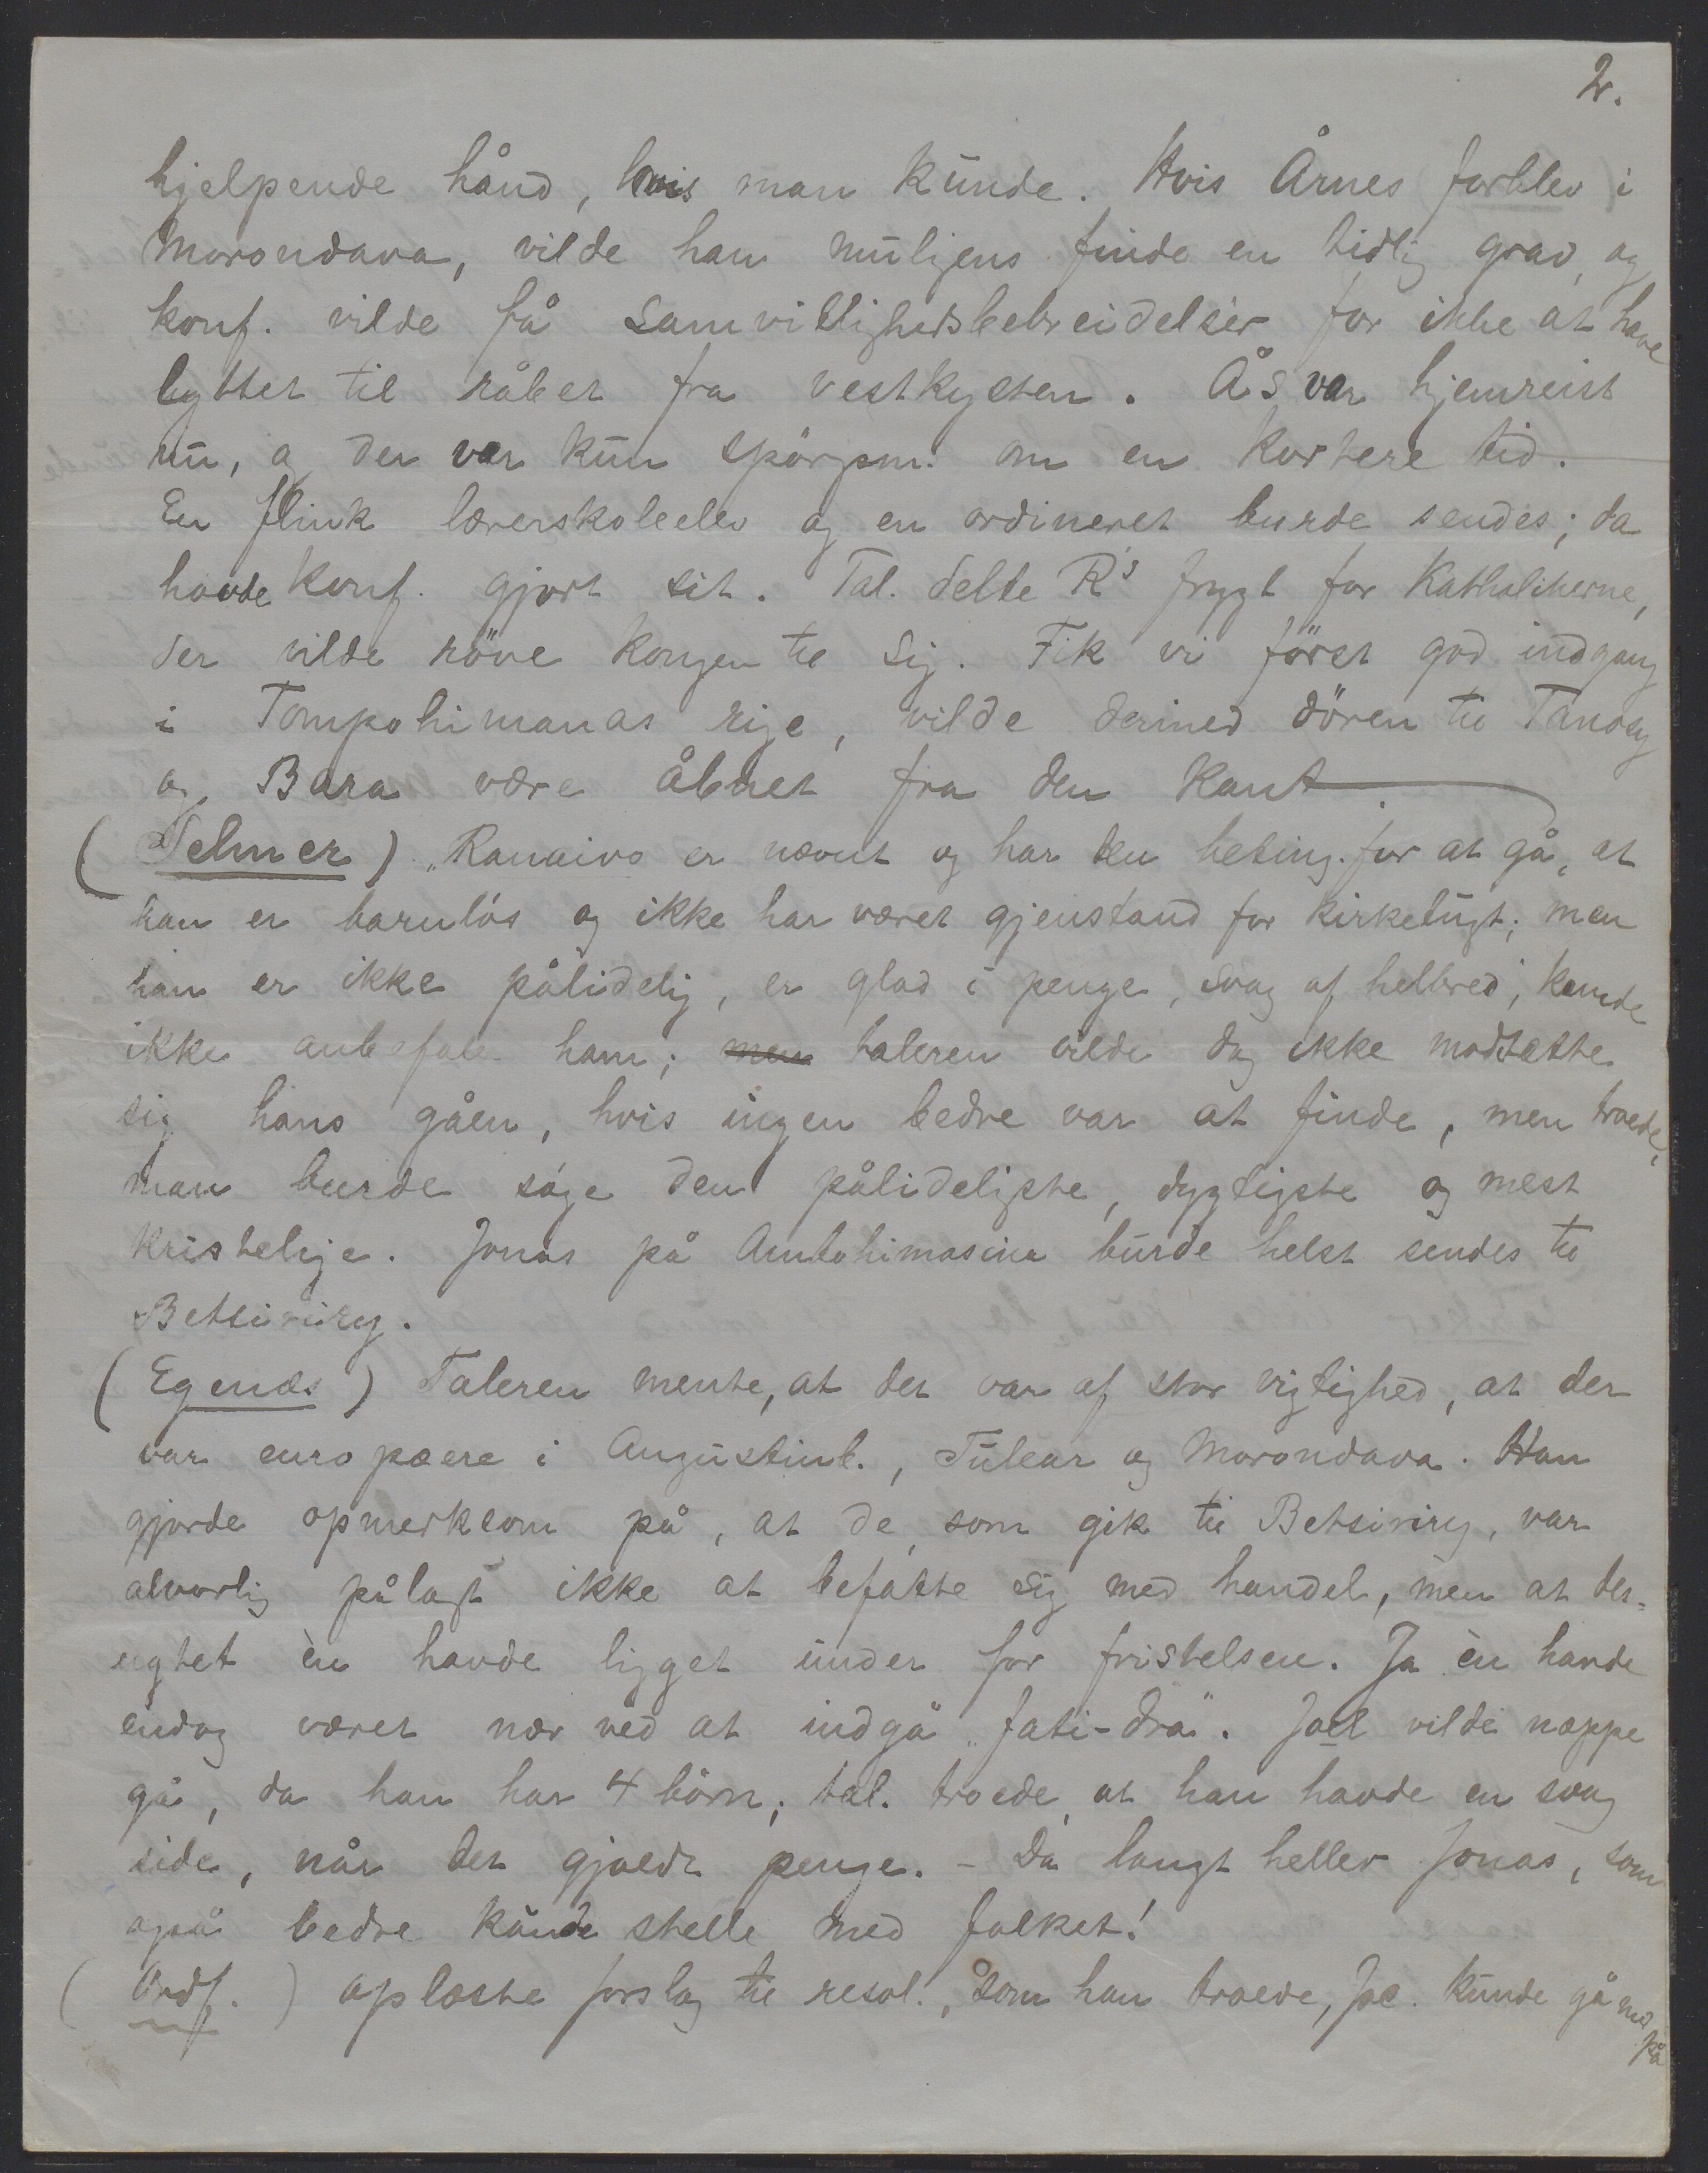 2.
hjelpende hånd, hvis man kunde. Hvis Årnes forblev i
Morondava, vilde han muligens finde en tidlig grav, og
konf. vilde få samvittighedsbebreidelser for ikke at have
lyttet til råbet fra vestkysten. Ås var hjemreist
nu, og der var kun spörgsm. om en kortere tid.
En flink lærerskoleelev og en ordineret burde sendes; da
havde konf. gjort sit. Tal. delte R's frygt for Katholikerne,
der vilde röve kongen til sig. Fik vi först god indgang
i Tompohimanas rige, vilde dermed dören til Tanosy
og Bara være åbnet fra den Kant.
(Selmer) „Ranaivo er nævnt og har den beting. for at gå, at
han er barnlös og ikke har været gjenstand for kirketugt; men
han er ikke pålidelig, er glad i penge, svag af helbred; kunde
ikke anbefale ham; men taleren vilde dog ikke modsætte
sig hans gåen, hvis ingen bedre var at finde, men troede,
man burde söge den pålideligste, dygtigste og mest
kristelige. Jonas på Ambohimasina burde helst sendes til
Betsiriry.
(Egenæs) Taleren mente, at det var af stor vigtighed, at der
var europæere i Augustinb., Tulear og Morondava. Han
gjorde opmerksom på, at de, som gik til Betsiriry, var
alvorlig pålagt ikke at befatte sig med handel, men at des-
ugtet èn havde ligget under for fristelsen. Ja èn havde
endog været nær ved at indgå „fati-drà". Joel vilde næppe
gå, da han har 4 börn; tal. troede, at han havde en svag
side, når det gjaldt penge. – Da langt heller Jonas, som
også bedre kunde stelle med folket!
(Ordf.) oplæste forslag til resol., som han troede, jac. kunde gå med
på